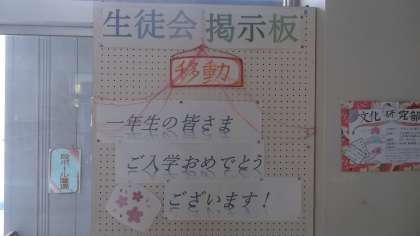 生徒会 掲示板
移動
一年生の皆さま
ご入学おめでとう
ございます!
文化研究部